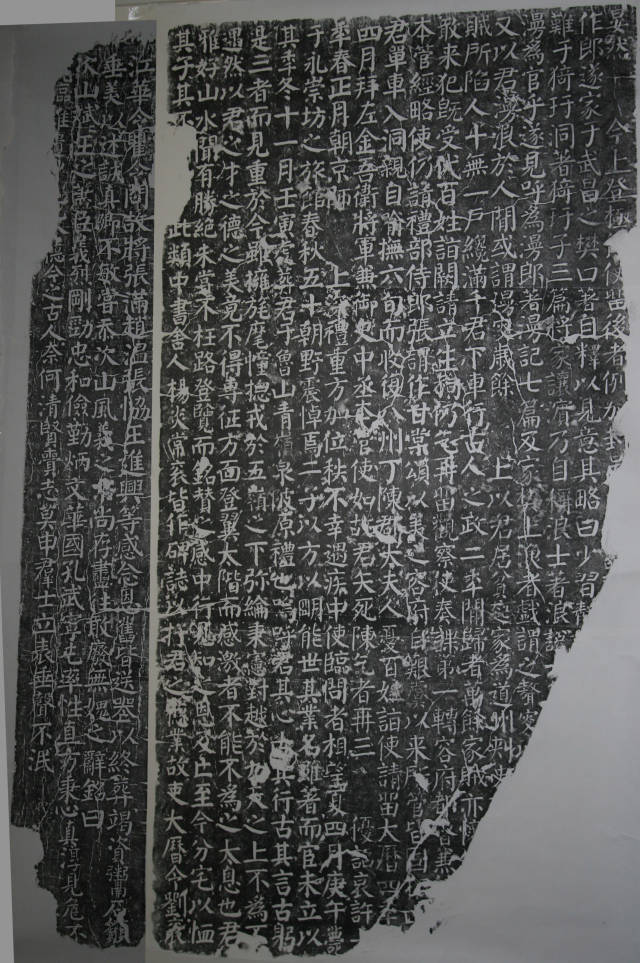 晏然一今上登極　後留後者例加封
作郎遂家于武昌之樊口著自釋以見意其略曰少習靜
難于猗玗洞著猗玗子三篇將家讓濱乃自稱浪士著浪說
漫為官乎遂見呼為漫郎著漫記七篇及家樊上漁者戲謂之聱叟
又以君漫浪於人間或謂之漫叟歲餘上以君居貧起家為道州刺史
賊所陷人十無一戶纔滿千君下車行古人之政二年間歸者萬餘家賊亦懷
敢來犯既受代百姓詣闕請立生祠仍乞再留觀察使奏課第一轉容府都督兼
本管經略使仍請禮部侍郎張謂作甘棠頌以美之容府自艱虞以來所管皆固拒
君單車入洞親自諭撫六旬而收復八州丁陳郡太夫人憂百姓詣使請留大曆四年
四月拜左金吾衛將軍兼御史中丞管使如故君矢死陳乞者再三優詔哀許
年春正月朝京師上深禮重方加位秩不幸遇疾中使臨問者相望夏四月庚午薨
于永崇坊之旅館春秋五十朝野震悼焉二子以方以明能世其業名雖著而官未立以
其年冬十一月壬寅虔葬君于魯山青嶺泉陂原禮也嗚呼君其心古其行古其言古躬
是三者而見重於今雖擁旄麾幢揔戎於五嶺之下弥綸秉憲對越於九天之上不為不
遇然以君之才之德之美竟不得專征方面登翼太階而感激者不能不為之太息也君
雅好山水聞有勝絕未嘗不枉路登覽而銘贊之感中行見知之恩及亡至今分宅以恤
其子其不　此類中書舍人楊炎常袞皆作碑誌以抒君之德業故吏大曆令劉袞
江華令瞿令問故將張滿趙溫張協王進興等感念恩舊皆送器以終葬竭資鬻石願
垂美以述誠真卿不敏嘗忝次山風義之末尚存盡往敢廢無愧之辭銘曰
次山斌斌王之藎臣義烈剛勁忠和儉勤炳文華國孔武寧屯率性真方秉心真淳見危不
臨難　允德全之古人奈何清賢賫志莫申群士立表垂聲不泯